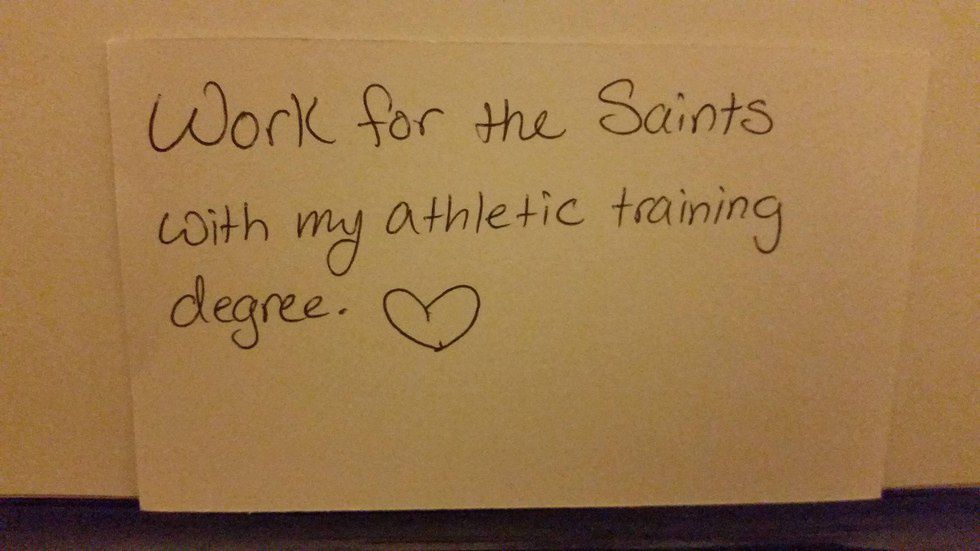 Work for the Saints
with my athletic training
degree. ♡